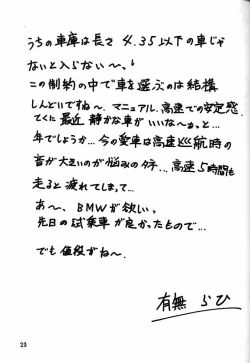 うちの車庫は長さ 4.35以下の車じゃ
ないと入らない〜。
この制約の中で車を選ぶのは結構
しんどいですね〜、マニュアル、高速での安定感、
てくに最近 静かな車が いいな〜ぁ、と…
年でしょうか… 今の愛車は高速巡航時の
音が大きいのが悩みのタネ… 高速5時間も
走ると 疲れてしまって…
あ〜、BMWが欲しい。
先日の試乗車が良かったもので…
でも値段がね〜。
有無 らひ
23